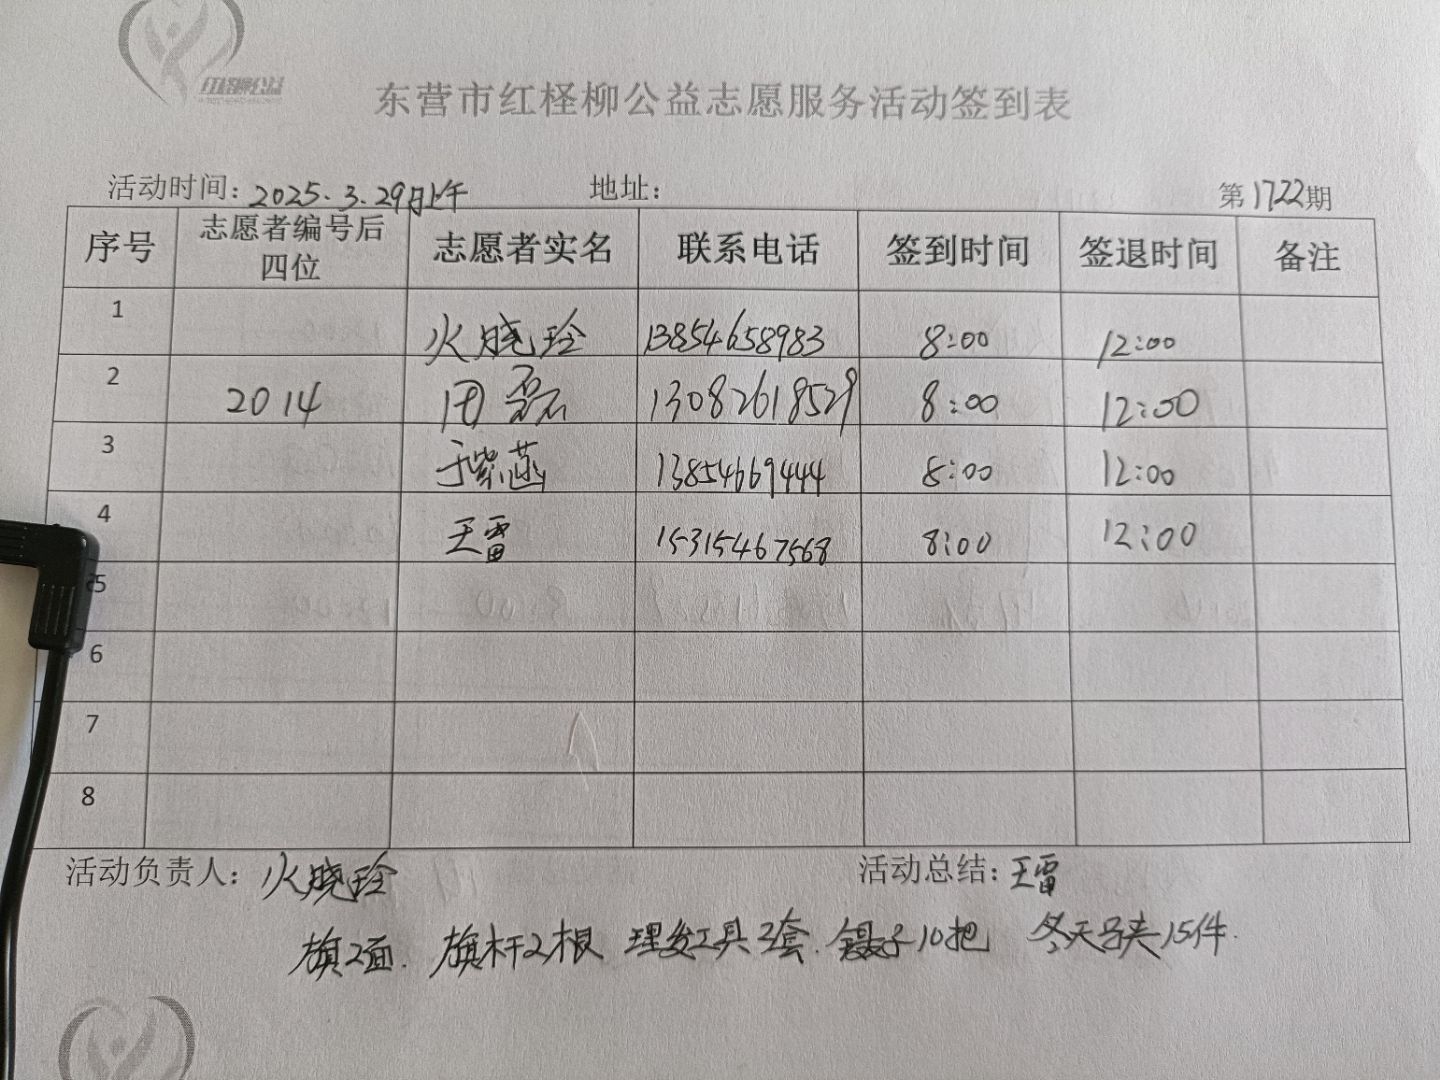 红柽柳公益
东营市红柽柳公益志愿服务活动签到表
活动时间：2025.3.29日上午 地址： 第1722期
序号 志愿者编号后四位 志愿者实名 联系电话 签到时间 签退时间 备注
1 火晓玲 13854658983 8:00 12:00
2 2014 田磊 13082618529 8:00 12:00
3 于紫涵 13854669444 8:00 12:00
4 王雷 15315467568 8:00 12:00
5
6
7
8
活动负责人：火晓玲 活动总结：王雷
旗2面. 旗杆2根 理发工具3套. 镊子10把 冬天马夹15件.